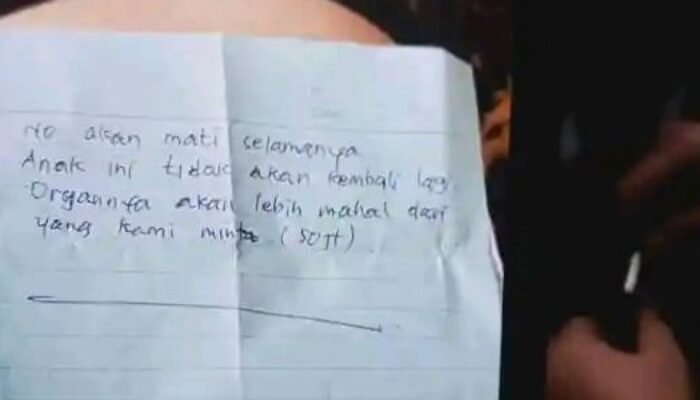 No akan mati selamanya
Anak ini tidak akan kembali lagi.
Organnya akan lebih mahal dari
yang kami minta (50jt)